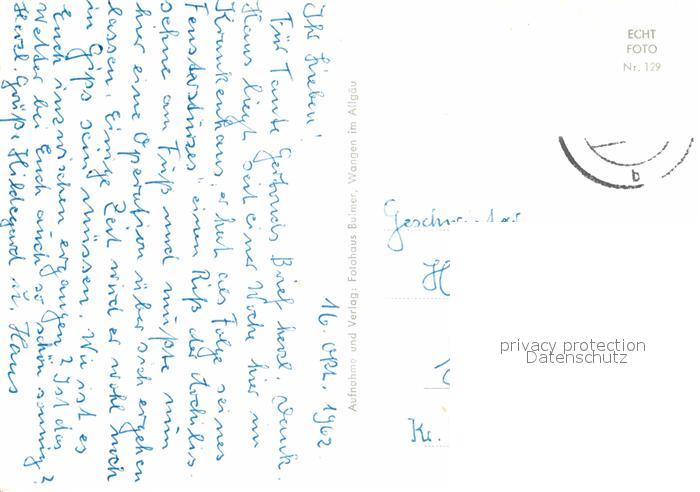 16. Okt. 1962.
Ihr Lieben!
Für Tante Gertruds Brief herzl. Dank.
Hans liegt seit einer Woche hier im
Krankenhaus, er hat als Folge seines
Fenstersturzes einen Riß der Archilis-
sehne am Fuß und mußte nun
hier eine Operation über sich ergehen
lassen. Einige Zeit wird er wohl noch
in Gips sein müssen. Wie ist es
Euch inzwischen ergangen? Ist das
Wetter bei Euch auch so schön sonnig?
Herzl. Grüße Hildegard u. Hans
Aufnahme und Verlag: Fotohaus Bulmer, Wangen im Allgäu
ECHT
FOTO
Nr. 129
b
Geschwister
H
Kr.
privacy protection
Datenschutz